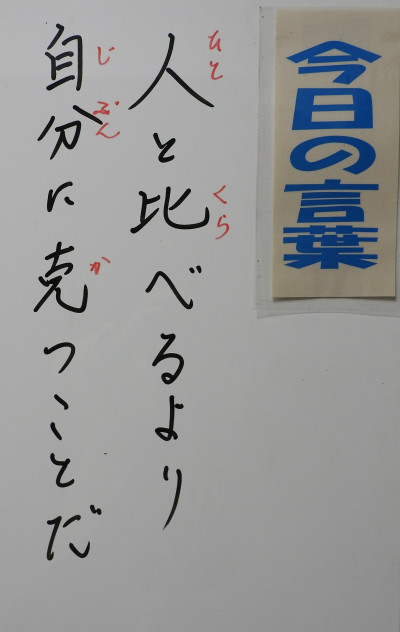 今日の言葉
人と比べるより
ひと
くら
自分に克つことだ
じ
ぶん
か